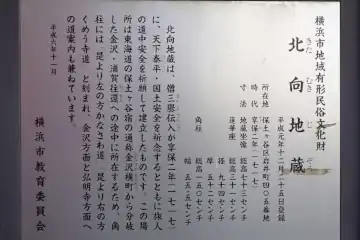 横浜市地域有形民俗文化財
平成元年十二月二十五日登録
北向地蔵
きた むき じ ぞう
所在地 保土ヶ谷区岩井町四〇五番地
時代 享保二年(一七一七)
寸法 地蔵坐像 総高七十三センチ
蓮華座 総高三十一センチ
径九十四センチ
角柱 総高一五〇センチ
幅五五・五センチ
北向地蔵は、僧三譽伝入が享保二年(一七一七)
に、天下泰平・国土安全を祈念するとともに旅人
の道中安全を祈願して建立したものです。この場
所は東海道の保土ヶ谷宿の通称金沢横町から分岐
した金沢・浦賀往還への途中に所在するため、角
柱には「是より左の方かなさわ道、是より右の方
くめう寺道」と刻まれ、金沢方面と弘明寺方面へ
の道案内も兼ねています。
平成六年十一月
横浜市教育委員会